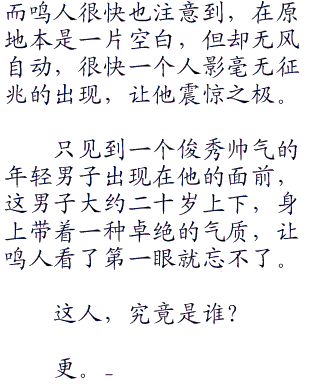 而鸣人很快也注意到，在原
地本是一片空白，但却无风
自动，很快一个人影毫无征
兆的出现，让他震惊之极。
只见到一个俊秀帅气的
年轻男子出现在他的面前，
这男子大约二十岁上下，身
上带着一种卓绝的气质，让
鸣人看了第一眼就忘不了。
这人，究竟是谁？
更。_